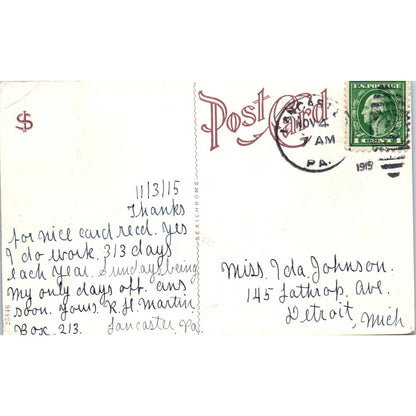 Post Card
LANCASTER
NOV 4
7 AM
PA.
1915
U.S. POSTAGE
1 CENT 1
11/3/15
Thanks
for nice card recd. Yes
I do work. 313 days
each year. Sundays being
my only days off. ans
soon. Yours. R.H. Martin.
Box. 213. Lancaster, Pa.
SEXICHROME
25816
Miss. Ida, Johnson.
145 Lathrop. Ave.
Detroit,
Mich